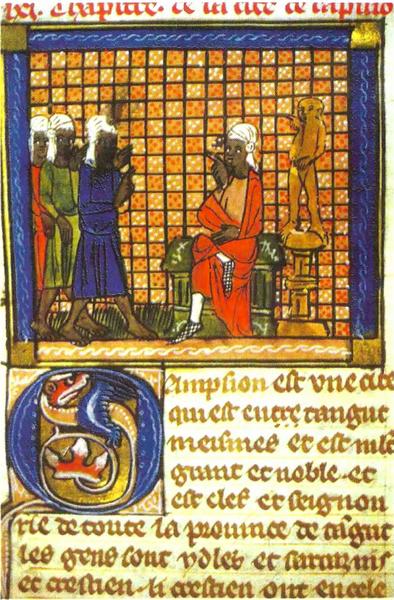 lxi. Chapitre. De la cite de campcio
Campsion est vne cite
qui est entre tangut
meismes et est mlt
grant et noble. et
est cles et seignou
rie de toute la prouince de tāgut
les gens sont ydles et sarazins
et crestien. li crestien ont en cele